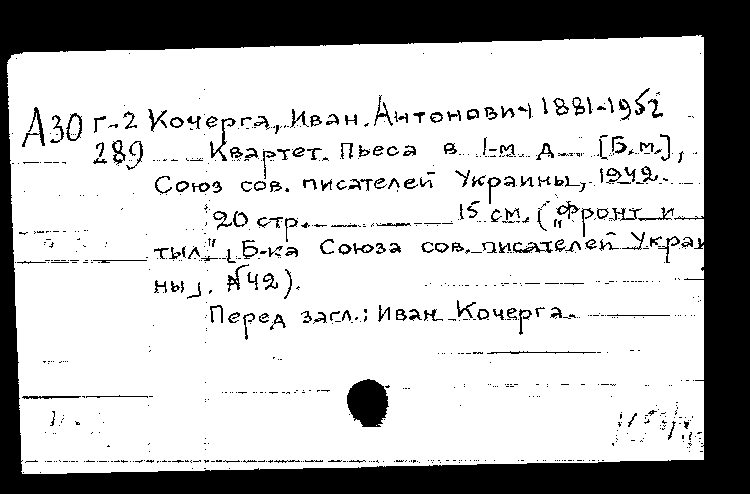 А30 г-2 Кочерга, Иван. Антонович 1881-1952
289 Квартет. Пьеса в 1-м д. [Б.м.],
Союз сов. писателей Украины, 1942.
20 стр. 15 см. („Фронт и
тыл" [Б-ка Союза сов. писателей Украи
ны]. № 42).
Перед загл.: Иван Кочерга.